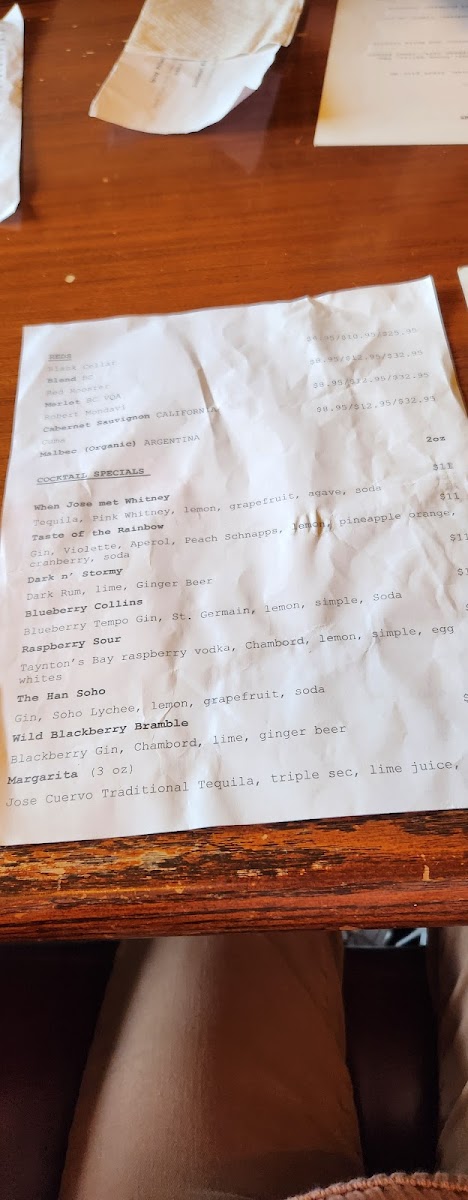 REDS
Black Cellar $8.95/$10.95/$25.95
Blend BC
Red Rooster $8.95/$12.95/$32.95
Merlot BC VQA
Robert Mondavi $8.95/$12.95/$32.95
Cabernet Sauvignon CALIFORNIA
Cuma $8.95/$12.95/$32.95
Malbec (Organic) ARGENTINA
COCKTAIL SPECIALS 2oz
When Jose met Whitney $11
Tequila, Pink Whitney, lemon, grapefruit, agave, soda
Taste of the Rainbow $11
Gin, Violette, Aperol, Peach Schnapps, lemon, pineapple orange,
cranberry, soda
Dark n' Stormy $11
Dark Rum, lime, Ginger Beer
Blueberry Collins
Blueberry Tempo Gin, St. Germain, lemon, simple, Soda
Raspberry Sour
Taynton's Bay raspberry vodka, Chambord, lemon, simple, egg
whites
The Han Soho
Gin, Soho Lychee, lemon, grapefruit, soda
Wild Blackberry Bramble
Blackberry Gin, Chambord, lime, ginger beer
Margarita (3 oz)
Jose Cuervo Traditional Tequila, triple sec, lime juice,